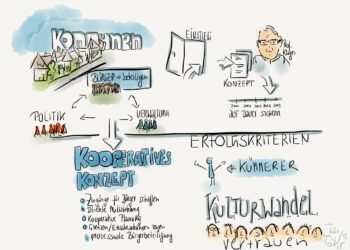 KOMMUNEN
EINSTIEG
BÜRGER → beteiligen
KONZEPT
POLITIK
VERWALTUNG
auf Dauer sichern
ERFOLGSKRITERIEN
KOOPERATIVES
KONZEPT
KÜMMERER
Zugänge für Bürger schaffen
Direkte Mitwirkung
Kooperative Planung
Grenzen/Einschränkungen zeigen
prozessuale Bürgerbeteiligung
KULTURWANDEL
Vertrauen